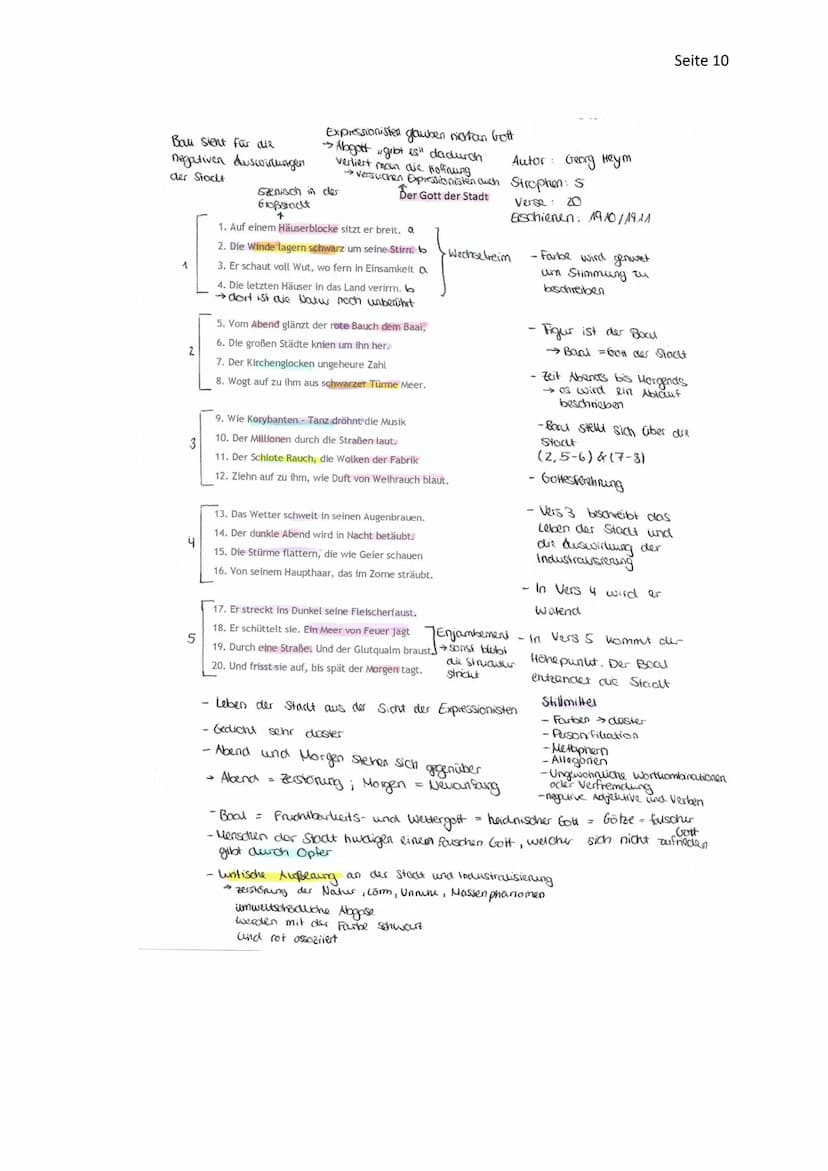 Seite 10
Baal steht für die
negativen Auswirkungen
der Stadt
Expressionisten glauben nicht an Gott
→ Abgott „gibt es" dadurch
verliert man die Hoffnung
→ versuchen Expressionisten auch
Autor: Georg Heym
Strophen: 5
Verse: 20
Erschienen: 1910/1911
Szenisch in der
Großstadt
Der Gott der Stadt
1
1. Auf einem Häuserblocke sitzt er breit. a
2. Die Winde lagern schwarz um seine Stirn. b
3. Er schaut voll Wut, wo fern in Einsamkeit a
4. Die letzten Häuser in das Land verirrn. b
→ dort ist die Natur noch unberührt
Wechselreim
- Farbe wird genutzt
um Stimmung zu
beschreiben
2
5. Vom Abend glänzt der rote Bauch dem Baal,
6. Die großen Städte knien um ihn her.
7. Der Kirchenglocken ungeheure Zahl
8. Wogt auf zu ihm aus schwarzer Türme Meer.
- Figur ist der Baal
→ Baal = Gott der Stadt
- Zeit Abends bis Morgends
→ es wird ein Ablauf
beschrieben
3
9. Wie Korybanten - Tanz dröhnt die Musik
10. Der Millionen durch die Straßen laut.
11. Der Schlote Rauch, die Wolken der Fabrik
12. Ziehn auf zu ihm, wie Duft von Weihrauch blaut.
- Baal stellt sich über die
Stadt
(2, 5-6) & (7-8)
- Gottesverehrung
4
13. Das Wetter schwelt in seinen Augenbrauen.
14. Der dunkle Abend wird in Nacht betäubt.
15. Die Stürme flattern, die wie Geier schauen
16. Von seinem Haupthaar, das im Zorne sträubt.
- Vers 3 beschreibt das
Leben der Stadt und
die Auswirkung der
Industralisierung
- In Vers 4 wird er
wütend
5
17. Er streckt ins Dunkel seine Fleischerfaust.
18. Er schüttelt sie. Ein Meer von Feuer jagt
19. Durch eine Straße. Und der Glutqualm braust
20. Und frisst sie auf, bis spät der Morgen tagt.
Enjambement
→ sonst bleibt
die Struktur
strickt
- In Vers 5 kommt der
Höhepunkt. Der Baal
entzündet die Stadt
- Leben der Stadt aus der Sicht der Expressionisten
- Gedicht sehr düster
- Abend und Morgen stehen sich gegenüber
→ Abend = Zerstörung ; Morgen = Neuanfang
Stillmittel
- Farben → düster
- Personifikation
- Metaphern
- Allegorien
- Ungewöhnliche Wortkombinationen
oder Verfremdung
- negative Adjektive und Verben
- Baal = Fruchtbarkeits- und Wettergott = heidnischer Gott = Götze = falscher
Gott
- Menschen der Stadt huldigen einem falschen Gott, welcher sich nicht zufrieden
gibt durch Opfer
- kritische Äußerung an der Stadt und Industralisierung
→ Zerstörung der Natur, Lärm, Unruhe, Massenphänomen
umweltschädliche Abgase
werden mit der Farbe schwarz
und rot assoziiert